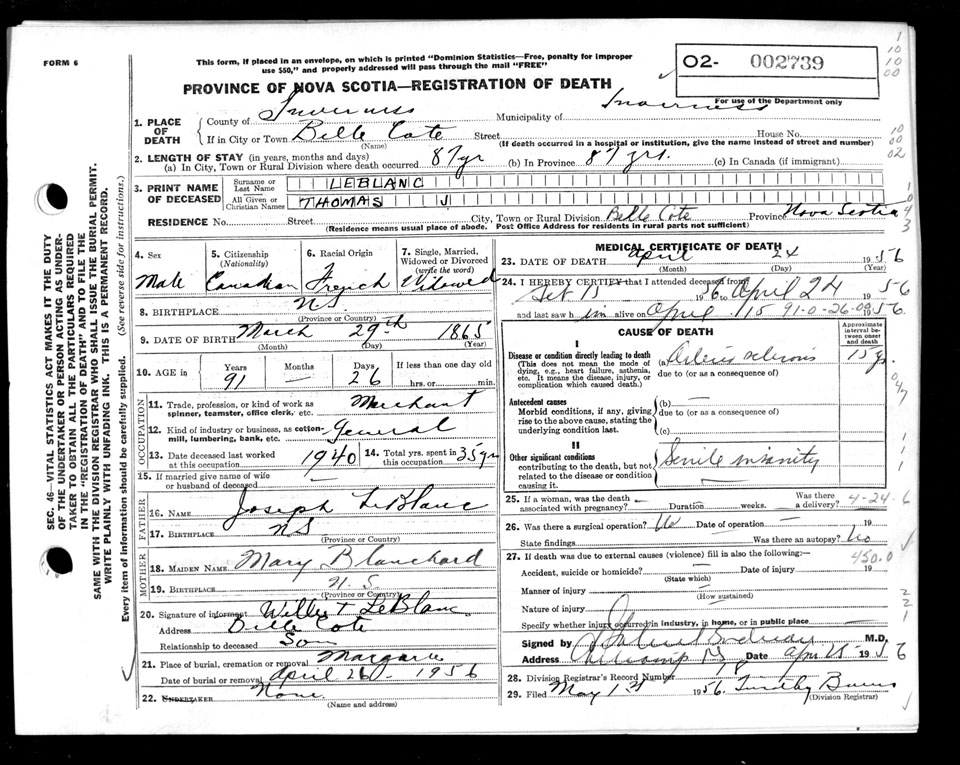 FORM 6
This form, if placed in an envelope, on which is printed "Dominion Statistics—Free, penalty for improper
use $50," and properly addressed will pass through the mail "FREE"
PROVINCE OF NOVA SCOTIA—REGISTRATION OF DEATH
O2- 002739
For use of the Department only
1. PLACE OF DEATH
County of Inverness Municipality of Inverness
If in City or Town Belle Cote Street House No.
(Name) (If death occurred in a hospital or institution, give the name instead of street and number)
2. LENGTH OF STAY (in years, months and days)
(a) In City, Town or Rural Division where death occurred 87 yr (b) In Province 87 yrs. (c) In Canada (if immigrant)
3. PRINT NAME OF DECEASED
Surname or Last Name LEBLANC
All Given or Christian Names THOMAS J
RESIDENCE No. Street City, Town or Rural Division Belle Cote Province Nova Scotia
(Residence means usual place of abode. Post Office Address for residents in rural parts not sufficient)
4. Sex
Male
5. Citizenship
(Nationality)
Canadian
6. Racial Origin
French
7. Single, Married, Widowed or Divorced
(write the word)
Widowed
8. BIRTHPLACE NS
(Province or Country)
9. DATE OF BIRTH March 29th 1865
(Month) (Day) (Year)
10. AGE in
Years Months Days If less than one day old
91 — 26 hrs. or min.
OCCUPATION
11. Trade, profession, or kind of work as spinner, teamster, office clerk, etc. Merchant
12. Kind of industry or business, as cotton-mill, lumbering, bank, etc. General
13. Date deceased last worked at this occupation 1940
14. Total yrs. spent in this occupation 35 yr
15. If married give name of wife or husband of deceased —
FATHER
16. NAME Joseph LeBlanc
17. BIRTHPLACE NS
(Province or Country)
MOTHER
18. MAIDEN NAME Mary Blanchard
19. BIRTHPLACE N.S.
(Province or Country)
20. Signature of informant LeBlanc
Address Belle Cote
Relationship to deceased Son
21. Place of burial, cremation or removal Margaree
Date of burial or removal April 26 1956
22. UNDERTAKER None
(Name and address)
MEDICAL CERTIFICATE OF DEATH
23. DATE OF DEATH April 24 1956
(Month) (Day) (Year)
24. I HEREBY CERTIFY that I attended deceased from
56 April 24 1956
and last saw him alive on April 15 91-0-26-00 1956.
CAUSE OF DEATH
Approximate interval between onset and death
I
Disease or condition directly leading to death
(This does not mean the mode of dying, e.g., heart failure, asthenia, etc. It means the disease, injury, or complication which caused death.)
(a) Arterio sclerosis 15 y.
due to (or as a consequence of)
Antecedent causes
Morbid conditions, if any, giving rise to the above cause, stating the underlying condition last.
(b) —
due to (or as a consequence of)
(c)
II
Other significant conditions
contributing to the death, but not related to the disease or condition causing it.
Senile insanity
25. If a woman, was the death associated with pregnancy? — Duration weeks. Was there a delivery? 4-24-6
26. Was there a surgical operation? No Date of operation — 19
State findings Was there an autopsy? No
27. If death was due to external causes (violence) fill in also the following:—
450.0
Accident, suicide or homicide? Date of injury 19
(State which)
Manner of injury —
(How sustained)
Nature of injury
Specify whether injury occurred in industry, in home, or in public place
Signed by M.D.
Address Cheticamp Date April 1956
28. Division Registrar's Record Number
29. Filed May 1st 1956. Timothy
(Division Registrar)
SEC. 46—VITAL STATISTICS ACT MAKES IT THE DUTY
OF THE UNDERTAKER OR PERSON ACTING AS UNDER-
TAKER TO OBTAIN ALL THE PARTICULARS REQUIRED
IN THE "REGISTRATION OF DEATH" AND TO FILE THE
SAME WITH THE DIVISION REGISTRAR WHO SHALL ISSUE THE BURIAL PERMIT.
WRITE PLAINLY WITH UNFADING INK. THIS IS A PERMANENT RECORD.
Every item of information should be carefully supplied. (See reverse side for instructions.)